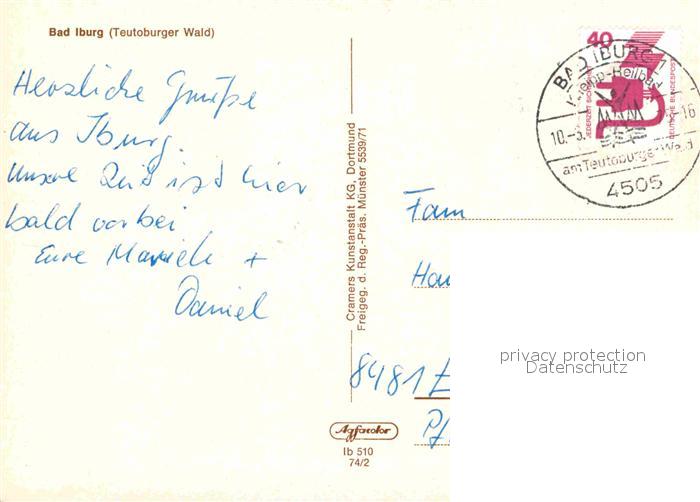 Bad Iburg (Teutoburger Wald)
Herzliche Grüße
aus Iburg.
Unsere Zeit ist hier
bald vorbei
Eure Mariele +
Daniel
Cramers Kunstanstalt KG, Dortmund
Freigeg. d. Reg.-Präs. Münster 5539/71
Agfacolor
Ib 510
74/2
40
JEDERZEIT SICHERHEIT
DEUTSCHE BUNDESPOST
BAD IBURG 1
Kneipp-Heilbad
10.-3.
-16
am Teutoburger Wald
4505
Fam
Hau
8481 E
Pf
privacy protection
Datenschutz